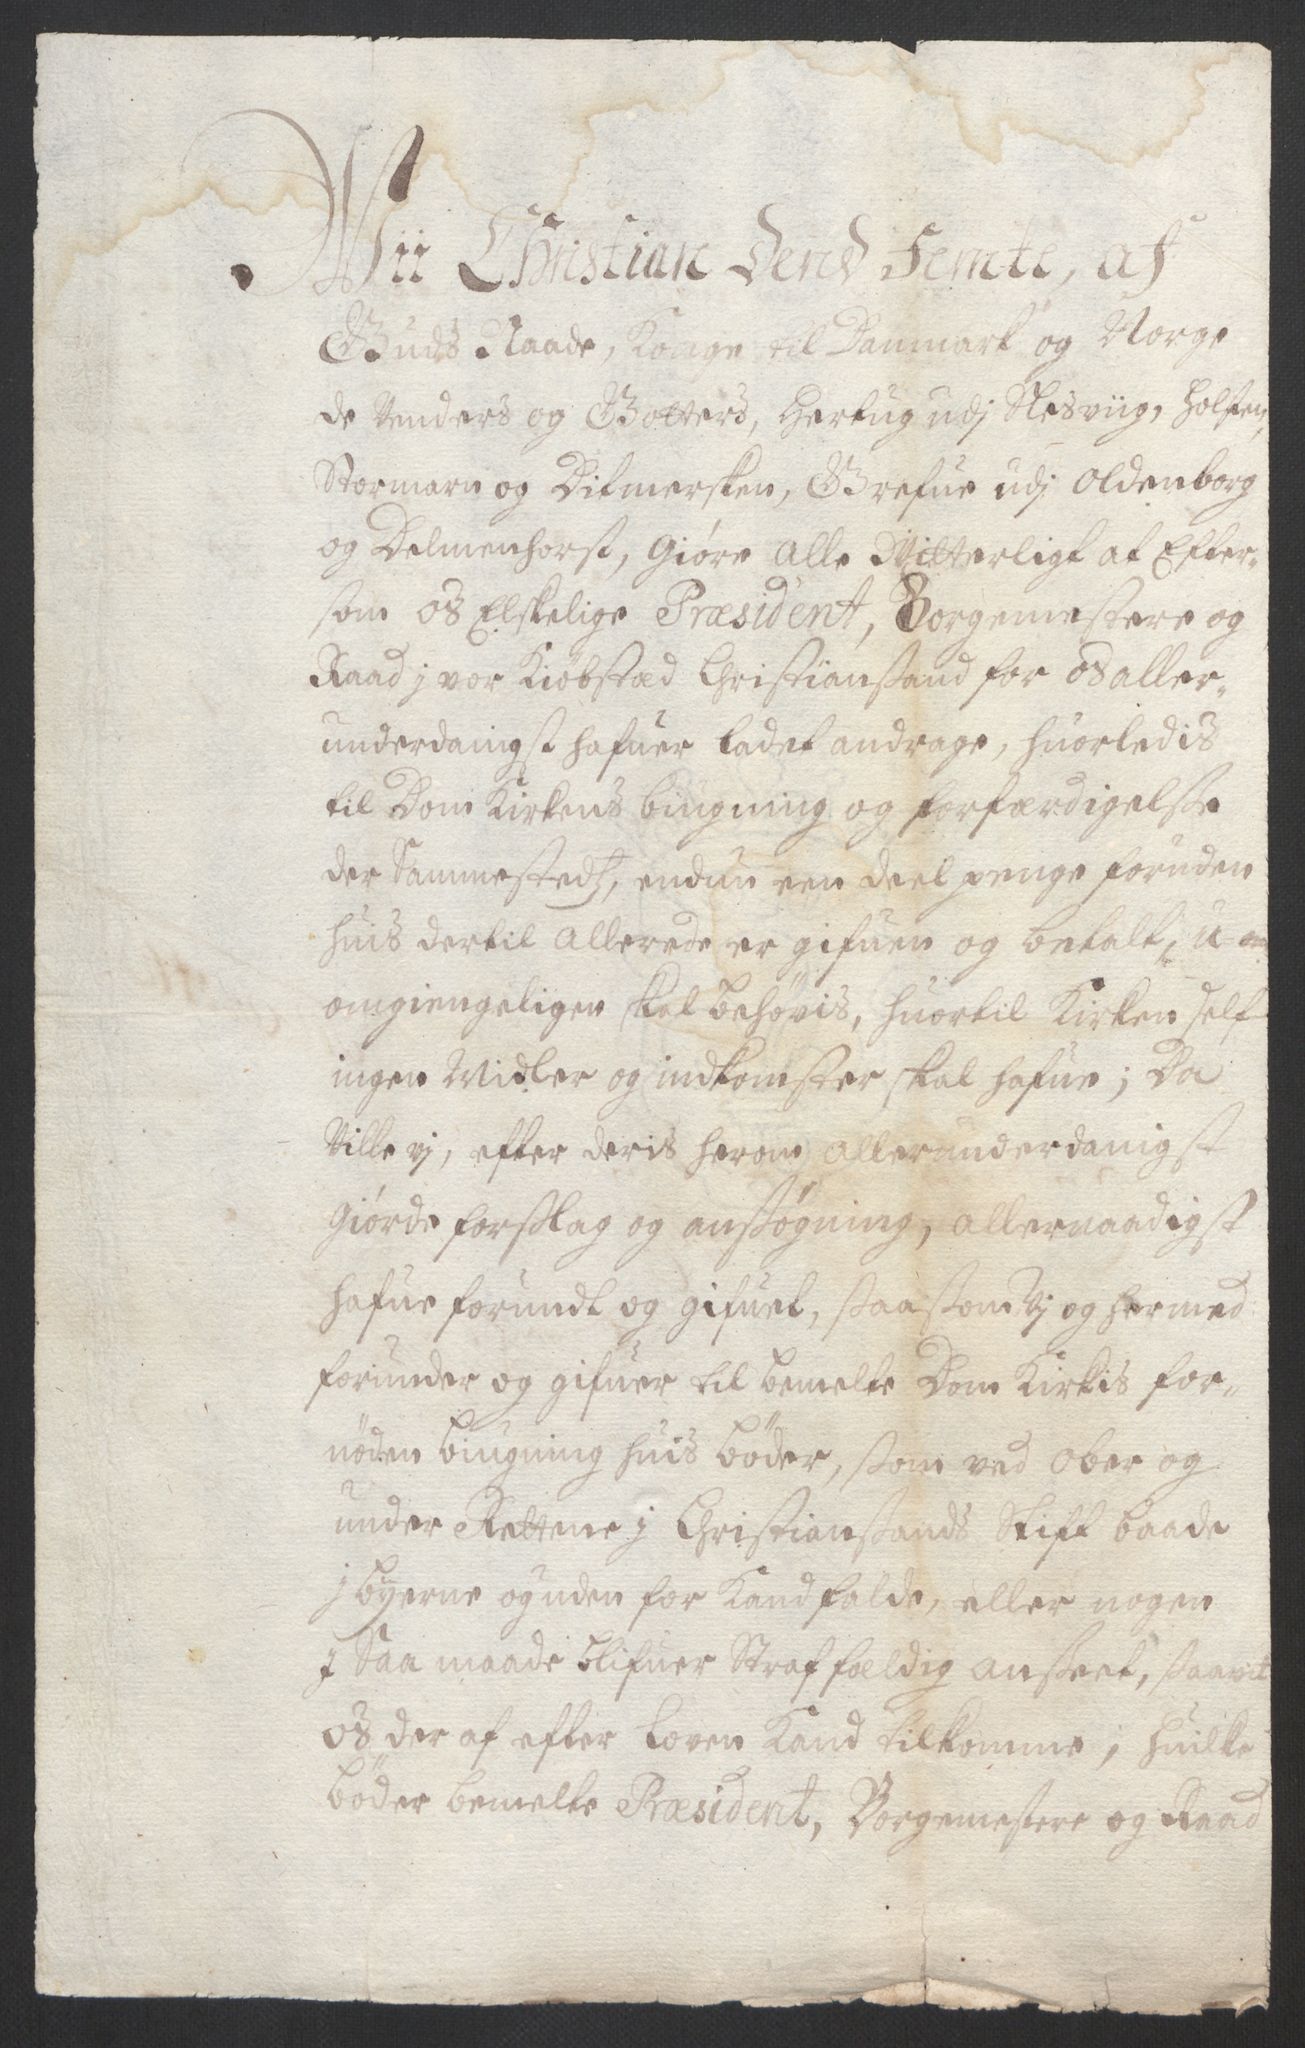 Wii Christian Dend Femte, af
Guds Naade, Konge til Danmark og Norge
de Venders og Gotters, Hertug udj Slesviig, Holsten,
Stormarn og Ditmersken, Grefue udj Oldenborg
og Delmenhorst, Giøre alle Witterligt at Efter„
som os Elskelige Præsident, Borgemestere og
Raad j vor Kiøbstæd Christiansand for os aller„
underdanigst hafuer ladet andrage, huorledis
til Dom Kirkens biugning og forfærdigelse
der Sammestedz, endnu een deel penge foruden
huis dertil allerede er gifuen og betalt, u=
omgiengeligen skal behøvis, huortil Kirken self
ingen Midler og indkomster skal hafue; Da
Ville vj, efter deris herom allerunderdanigst
Giørde forslag og ansøgning, allernaadigst
hafue forundt og gifuet, saasom Vj og hermed
forunder og gifuer til bemelte Dom Kirkis for„
nöden biugning huis bøder, som ved Ober og
under Rettene j Christiansands Stift baade
j byerne og uden for Kand falde, eller nogen
j Saa maade blifuer Straf fældig anseet, saavit
os der af efter loven Kand tilkomme; huilke
bøder bemelte Præsident, Borgemestere og Raad